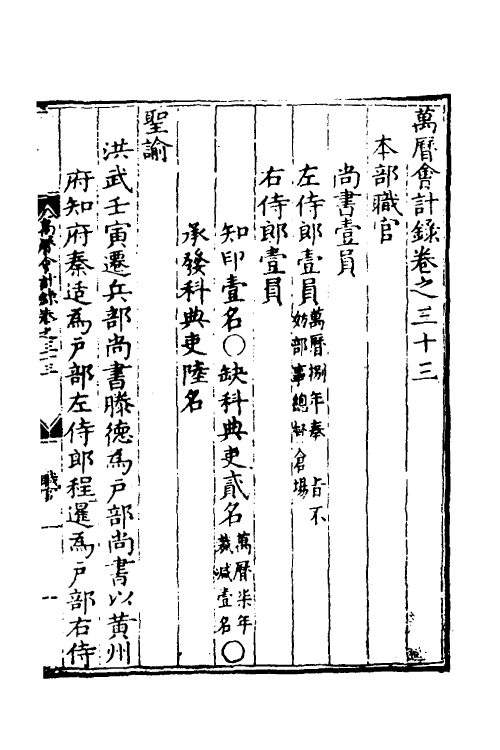 萬曆會計錄卷之三十三
本部職官
尚書壹員
左侍郎壹員萬曆捌年奉 旨不妨部事總督倉場
右侍郎壹員
知印壹名○缺科典吏貳名萬曆柒年裁減壹名○
承發科典吏陸名
聖諭
洪武壬寅遷兵部尚書滕德為戶部尚書以黃州
府知府秦适為戶部左侍郎程進為戶部右侍
萬曆會計錄卷之三十三
職官
一